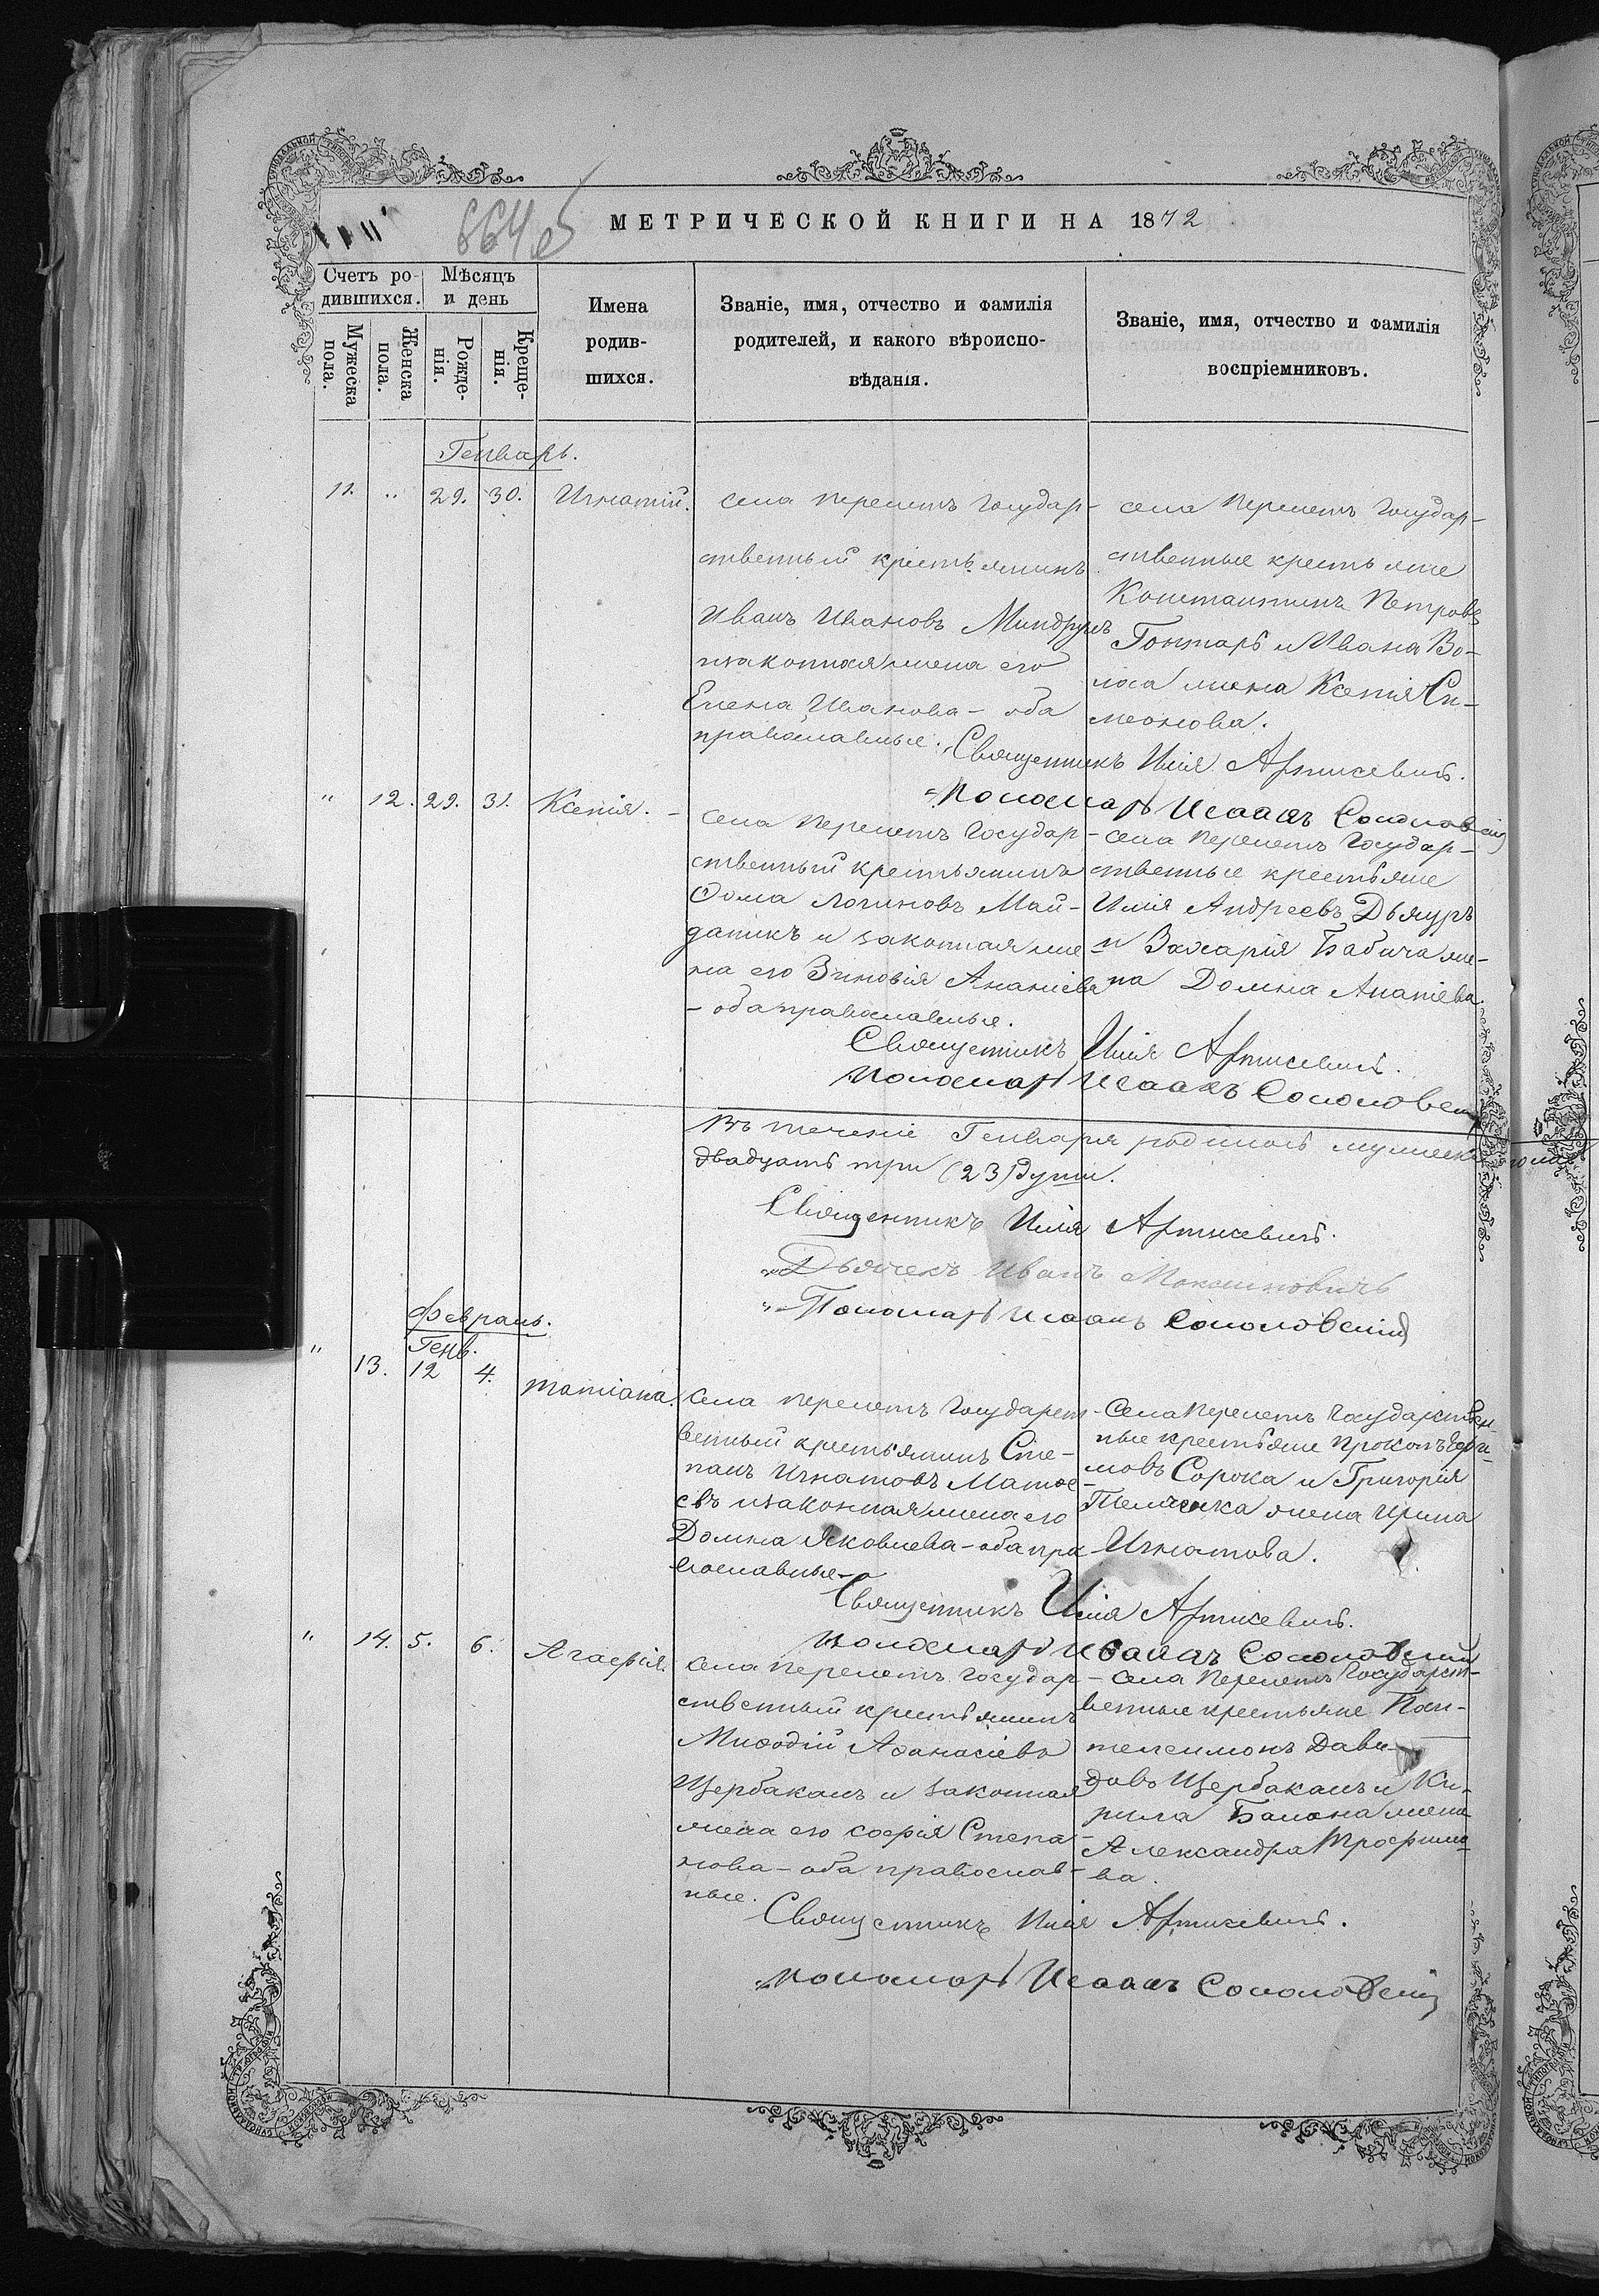 664 об
МЕТРИЧЕСКОЙ КНИГИ НА 1872
Счетъ ро-
дившихся.
Мѣсяцъ
и день
Мужеска
пола.
Женска
пола.
Рожде-
нія.
Креще-
нія.
Имена
родив-
шихся.
Званіе, имя, отчество и фамилія
родителей, и какого вѣроиспо-
вѣданія.
Званіе, имя, отчество и фамилія
воспріемниковъ.
Генварь.
11. " 29. 30. Игнатій.
села Перелетъ Государ-
ственный крестьянинъ
Иванъ Ивановъ
и законная жена его
Елена Иванова - оба
православные.
села Перелетъ Государ-
ственные крестьяне
Константинъ Петровъ
Гонтарь и Ивана Во-
лоса жена Ксенія Си-
меонова.
Священникъ Илія
Пономарь Исаакъ
" 12. 29. 31. Ксенія.
села Перелетъ Государ-
ственный крестьянинъ
Ѳома Логиновъ Май-
даникъ и законная же-
на его Зиновія Ананіева
- оба православные.
села Перелетъ Государ-
ственные крестьяне
Илія Андреевъ Дьяуръ
и Захарія Бабича же-
на Домна Ананіева.
Священникъ Илія
Пономарь Исаакъ
Въ теченіе Генваря родилось мужеска пола
двадцать три (23) души.
Священникъ Илія
Дьячекъ Иванъ
Пономарь Исаакъ
Февраль.
Генв.
" 13. 12 4. Татіана.
села Перелетъ Государст-
венный крестьянинъ Сте-
панъ Игнатовъ Матѳе-
евъ и законная жена его
Домна Яковлева - оба пра-
вославные
Села Перелетъ Государствен-
ные крестьяне Прокопъ
мовъ Сорока и Григорія
жена Ирина
Игнатова.
Священникъ Илія
Пономарь Исаакъ
" 14. 5. 6. Агафія.
села Перелетъ Государ-
ственный крестьянинъ
Миѳодій Аѳанасіевъ
Щербаканъ и законная
жена его Софія Степа-
нова - оба православ-
ные.
Села Перелетъ Государст-
венные крестьяне Пан-
телеимонъ Дави-
довъ Щербаканъ и Ки-
рила жена
Александра Трофимо-
ва.
Священникъ Илія
Пономарь Исаакъ